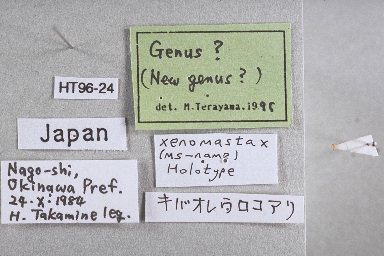 Genus ?
(New genus ? )
det. M.Terayama.1995
HT96-24
Japan
Nago-shi,
Okinawa Pref.
24·X·1984
H. Takamine leg.
xenomastax
(ms-name)
Holotype
キバオレウロコアリ